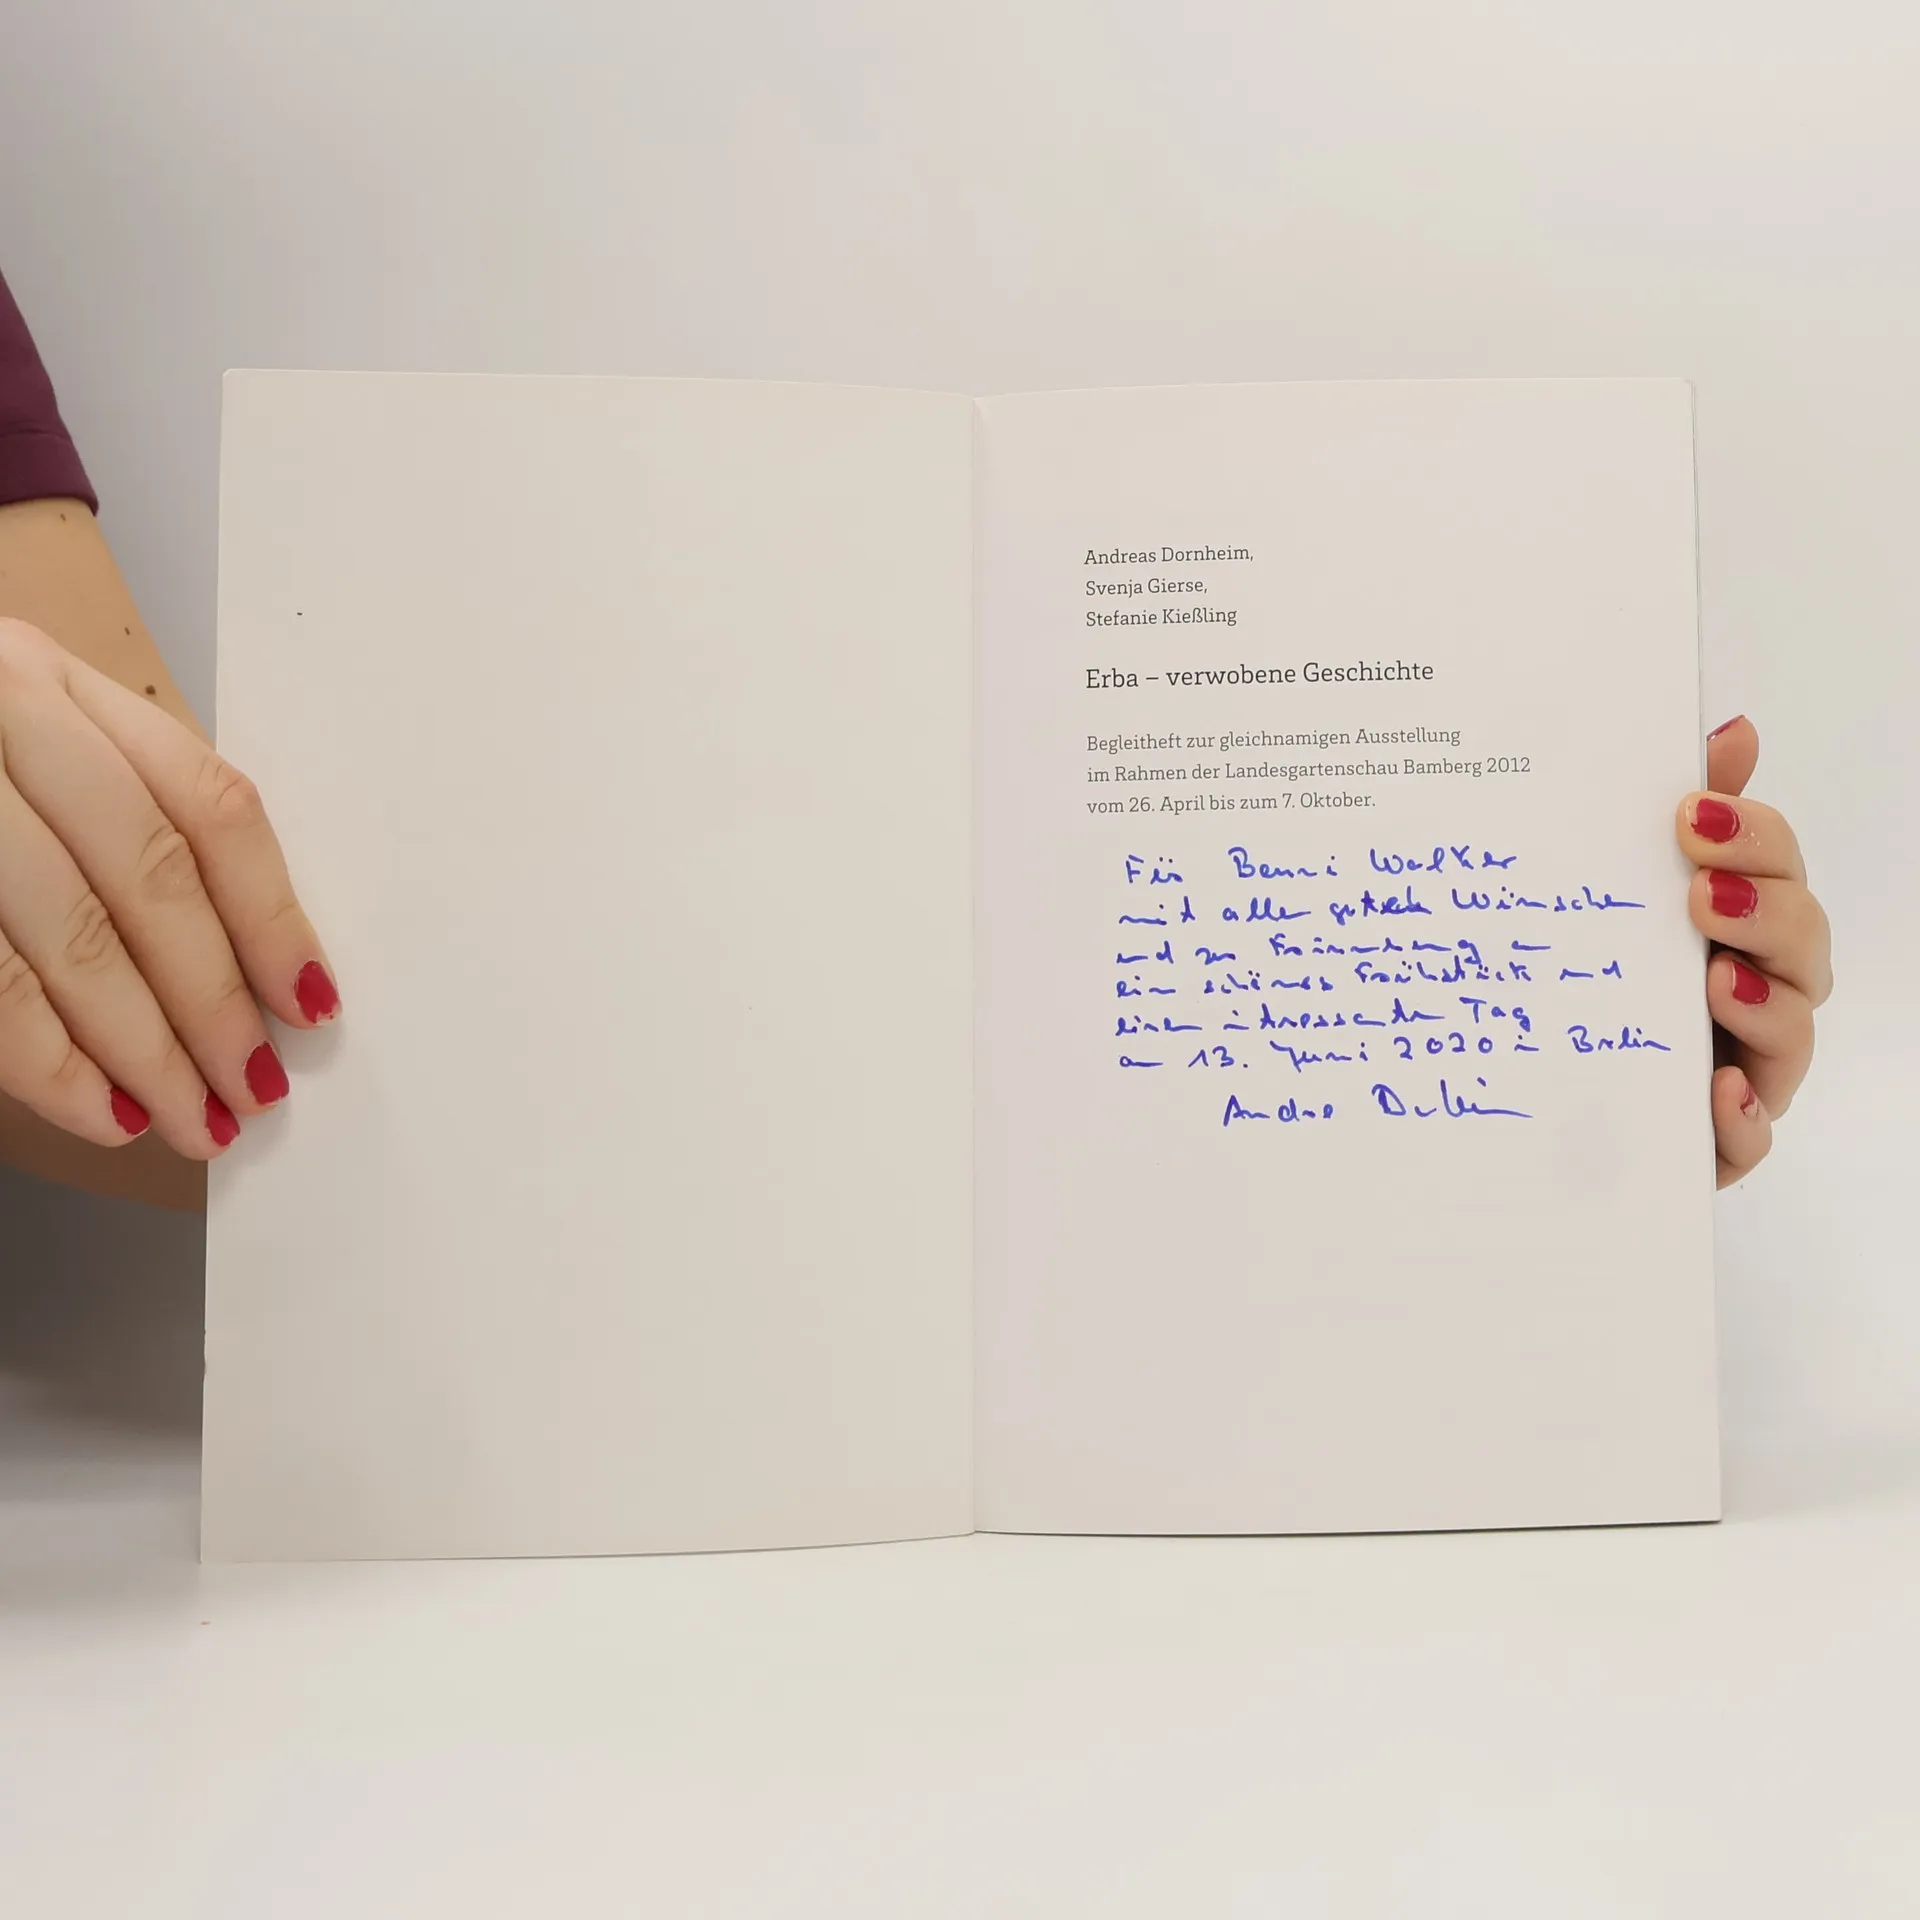 Andreas Dornheim,
Svenja Gierse,
Stefanie Kießling
Erba – verwobene Geschichte
Begleitheft zur gleichnamigen Ausstellung
im Rahmen der Landesgartenschau Bamberg 2012
vom 26. April bis zum 7. Oktober.
Für Benni Walker
mit allen guten Wünschen
und zur Erinnerung an
ein schönes Frühstück und
einen interessanten Tag
am 13. Juni 2020 in Berlin
Andreas Dornheim